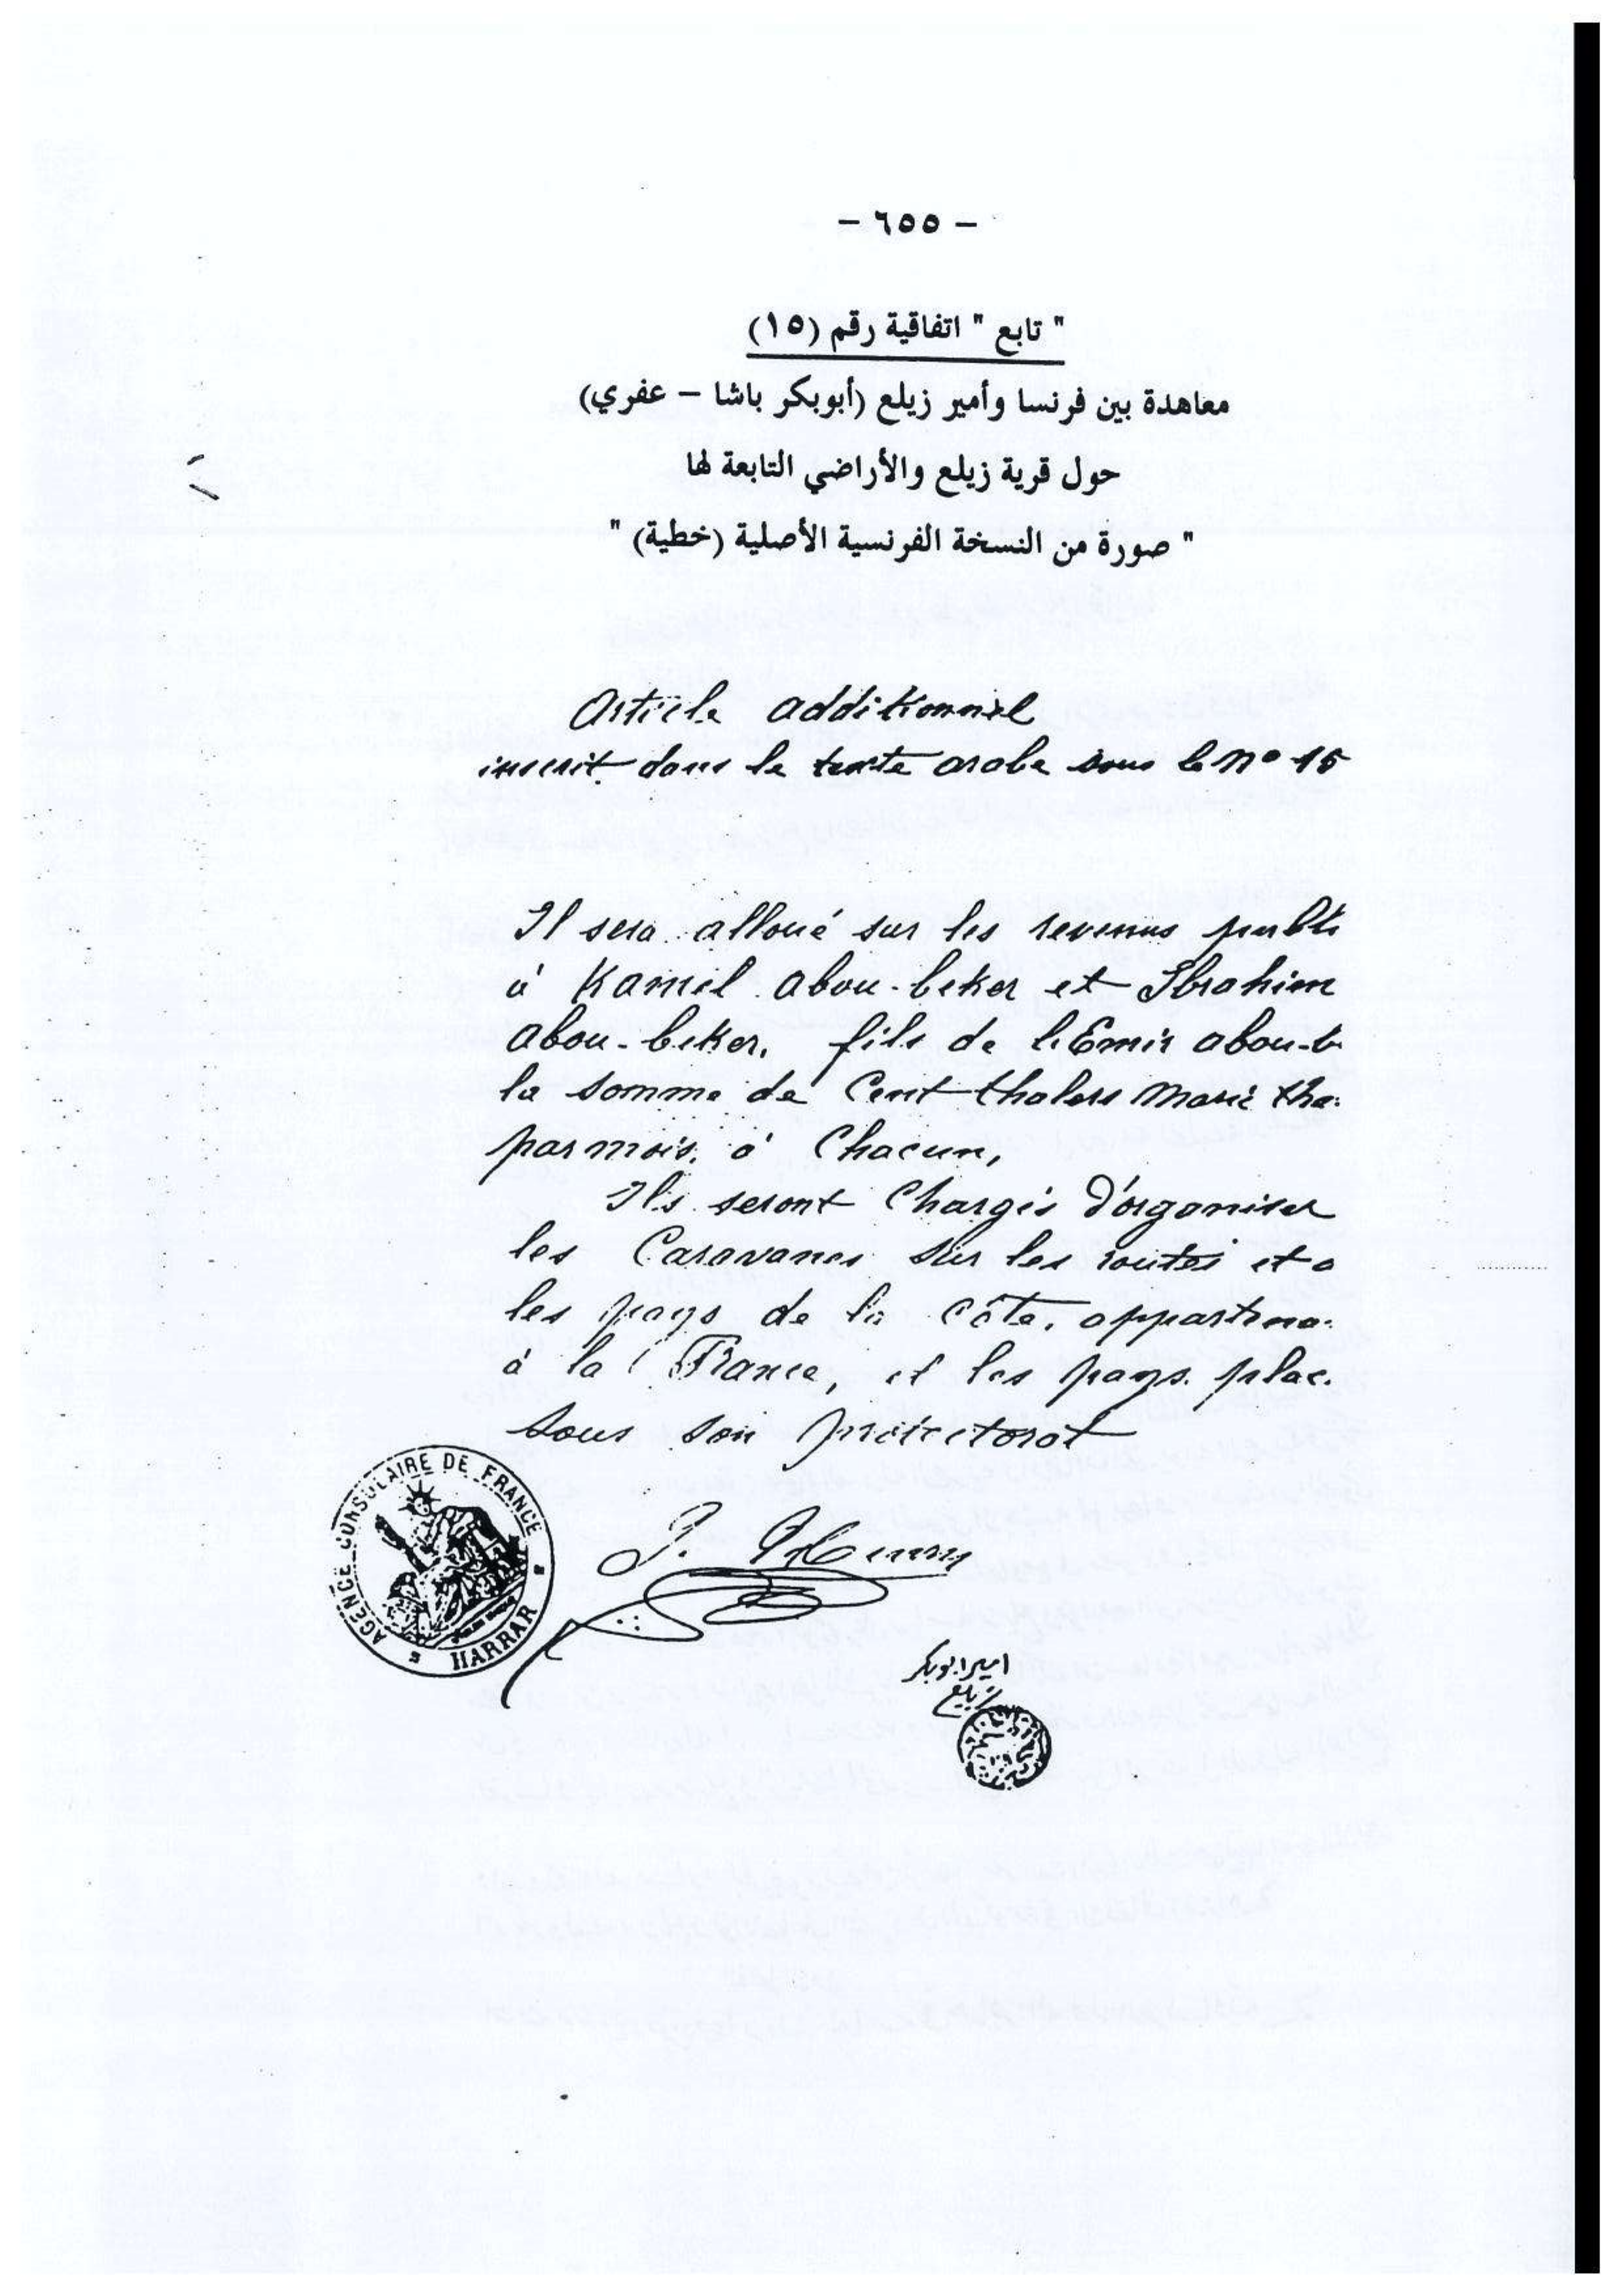 – ٦٥٥ –
" تابع " اتفاقية رقم (١٥)
معاهدة بين فرنسا وأمير زيلع (أبوبكر باشا – عفري)
حول قرية زيلع والأراضي التابعة لها
" صورة من النسخة الفرنسية الأصلية (خطية) "
Article additionnel
inscrit dans le texte arabe sous le No 15
Il sera alloué sur les revenus publi
à Kamil abou-beker et Ibrahim
abou-beker, fils de l'Emir abou-b
la somme de Cent thalers Marie the
par mois, à Chacun,
Ils seront Chargés d'organiser
les Caravanes sur les routes et a
les pays de la Côte, appartena
à la France, et les pays plac
sous son protectorat
AGENCE CONSULAIRE DE FRANCE
HARRAR
J.
امير ابوبكر
زيلع